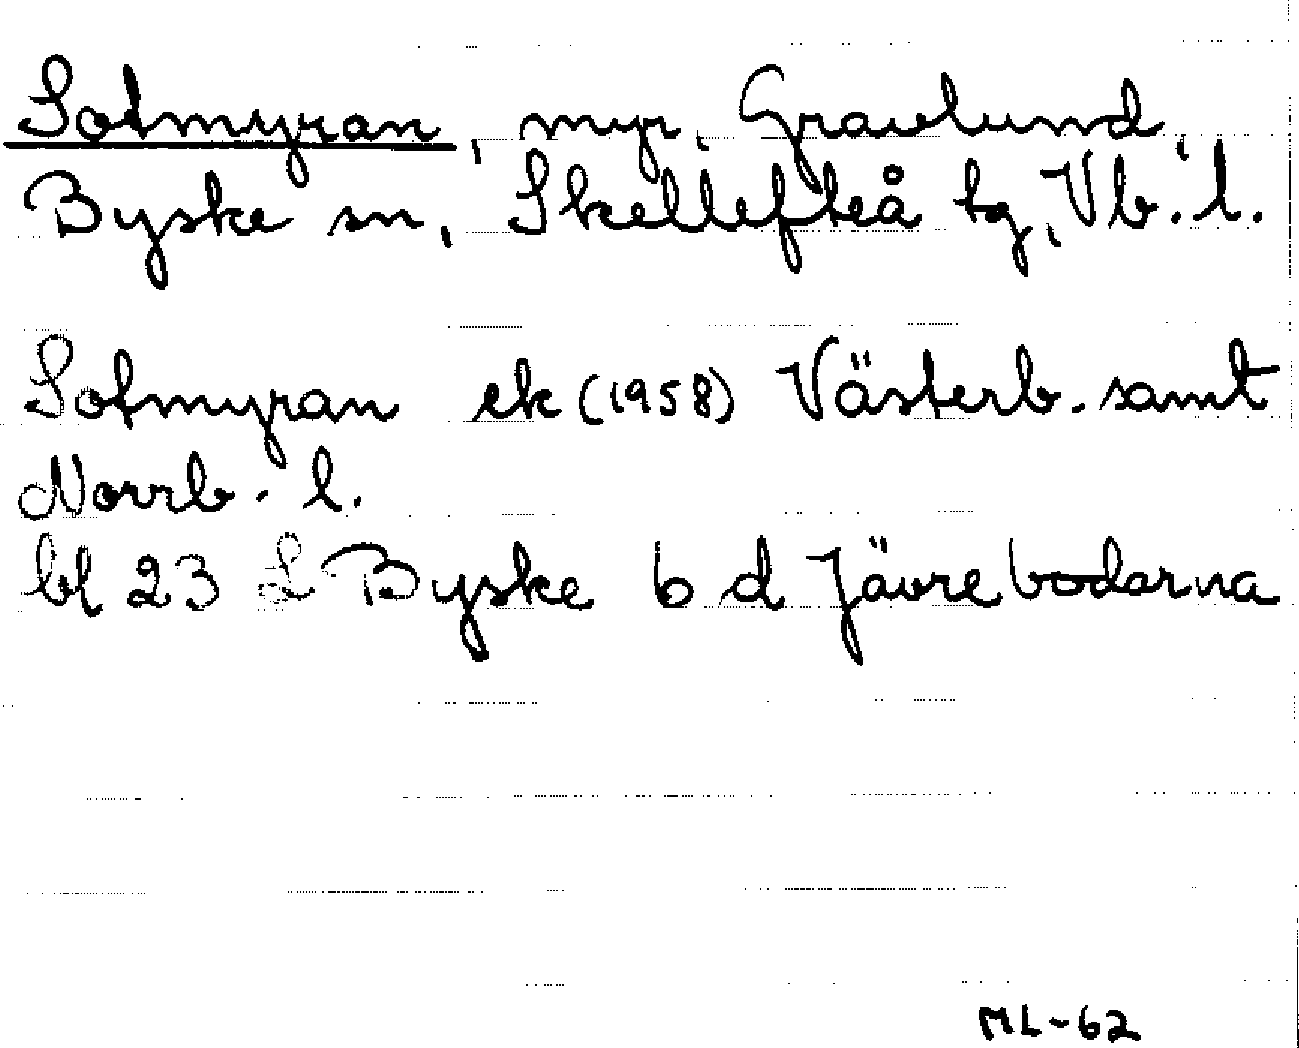 Sotmyran, myr, Gravlund,
Byske sn, Skellefteå tg, Vb. l.
Sotmyran ek (1958) Västerb. samt
Norrb. l.
bl 23 L Byske 6 d Jävrebodarna
ML-62